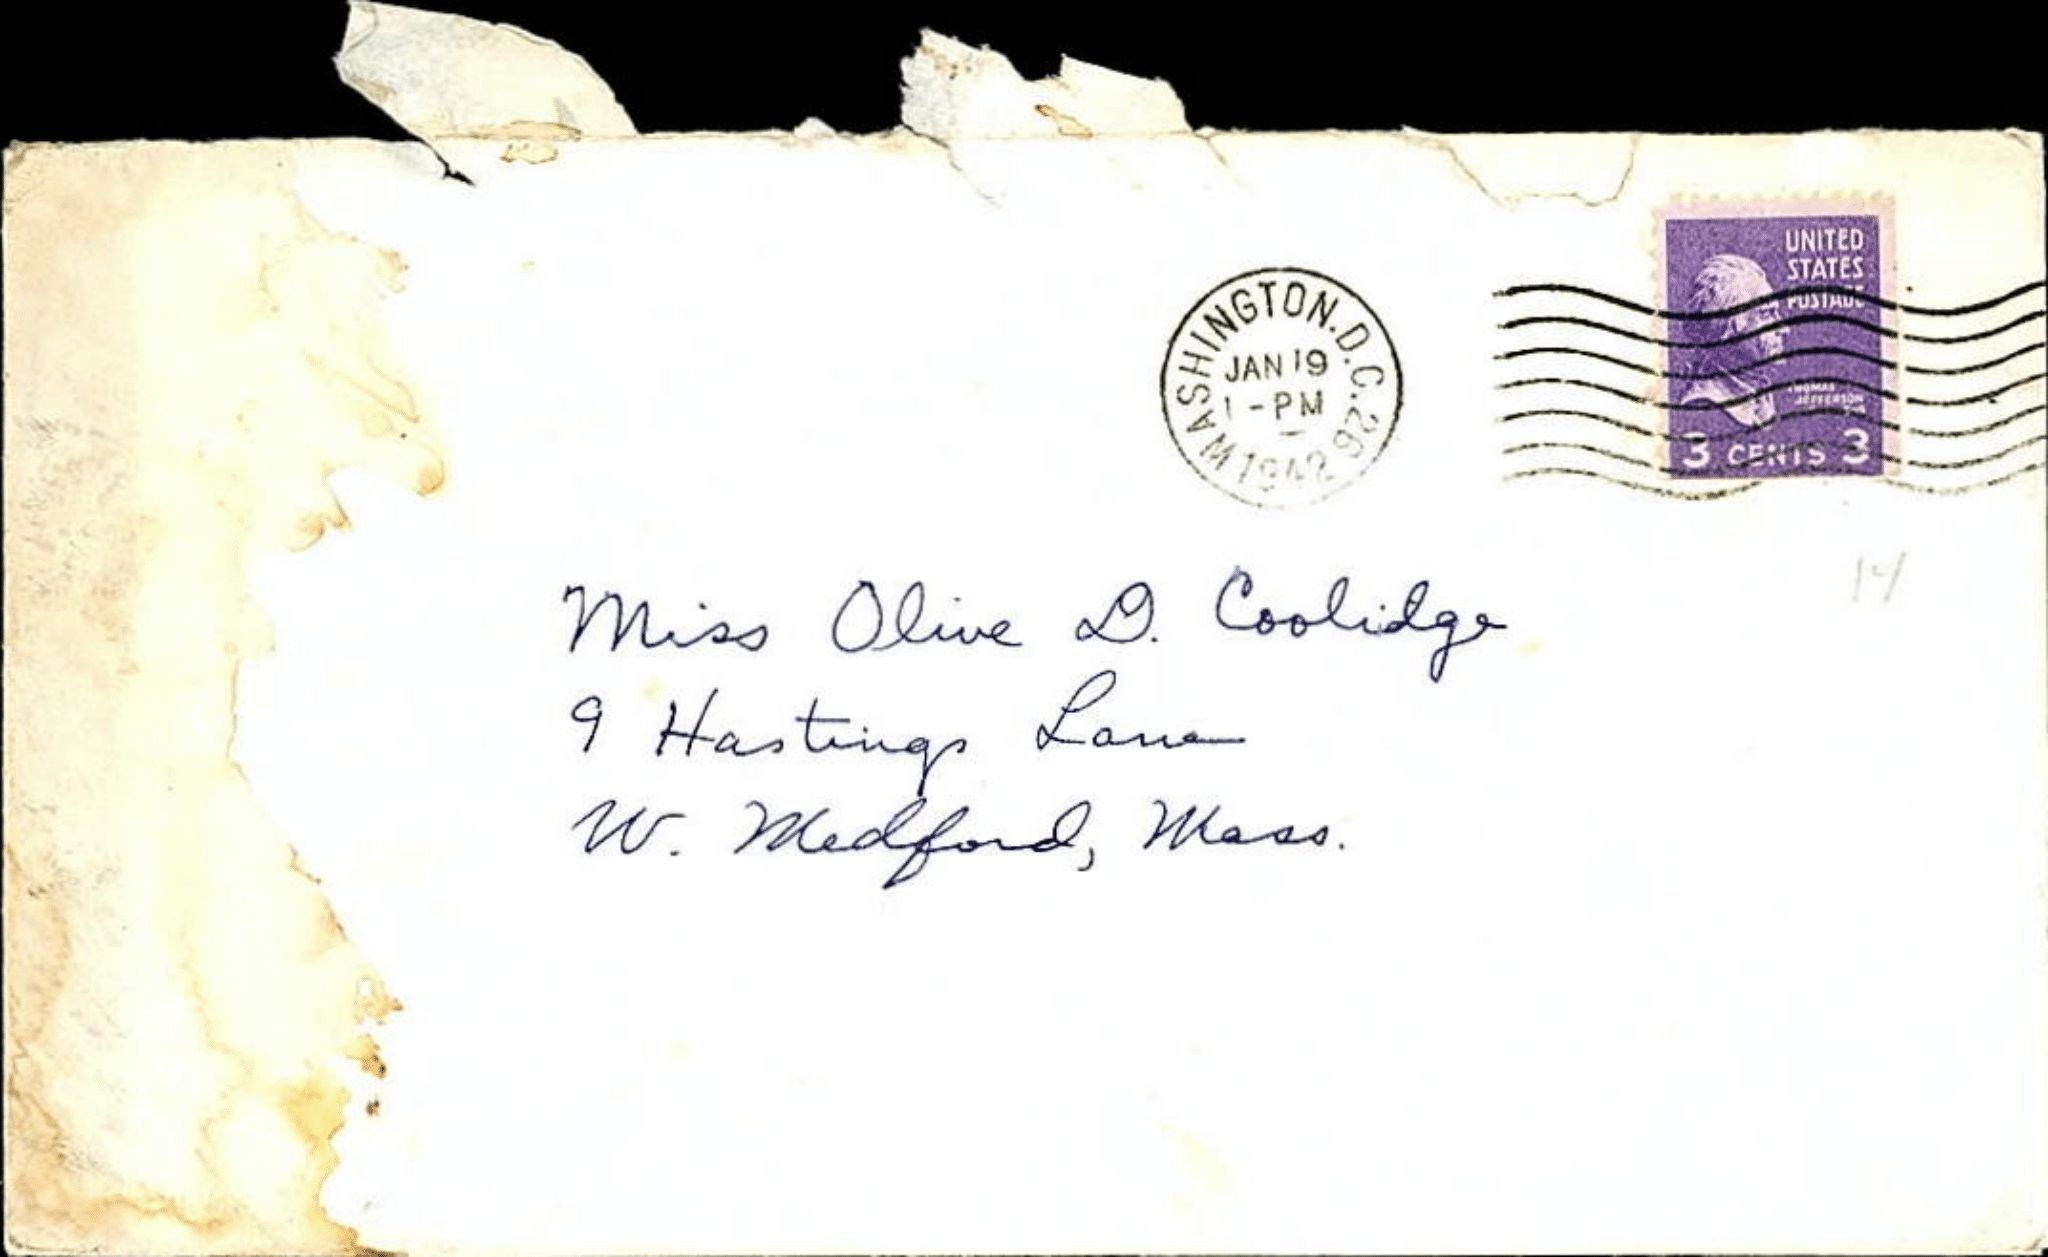 WASHINGTON. D.C. 26
JAN 19
1 - PM
1942
UNITED
STATES
POSTAGE
THOMAS
JEFFERSON
3 CENTS 3
14
Miss Olive D. Coolidge
9 Hastings Lane
W. Medford, Mass.